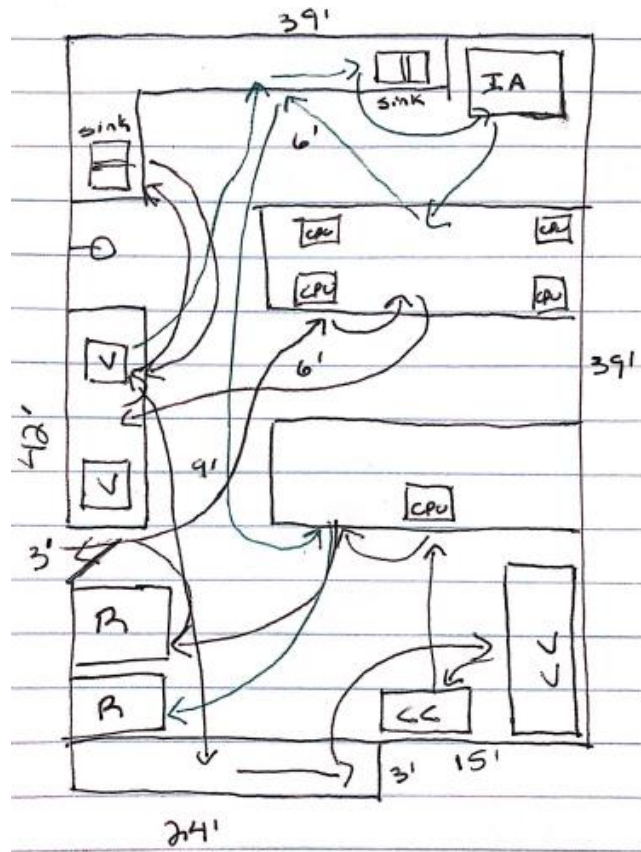 39'
sink
IA
sink
6'
CPU
CPU
CPU
CPU
V
6'
39'
42'
9'
V
CPU
3'
R
CC
R
CC
3'
15'
24'